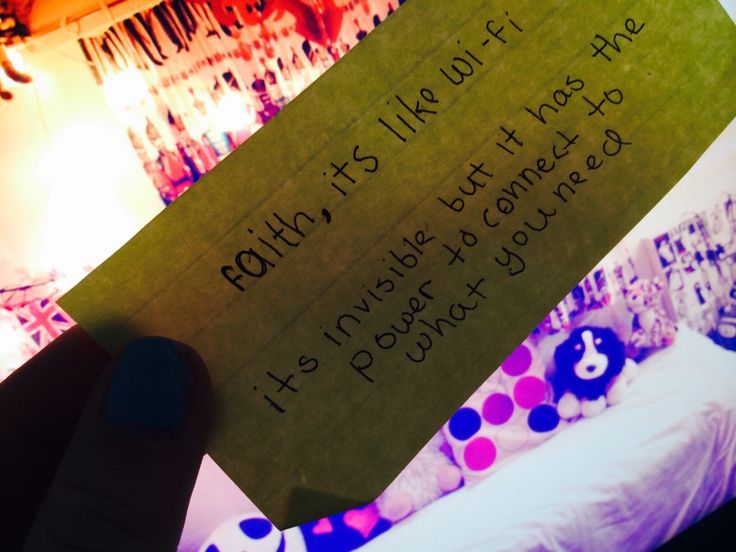 Faith, its like wi-fi
its invisible but it has the
power to connect to
what you need